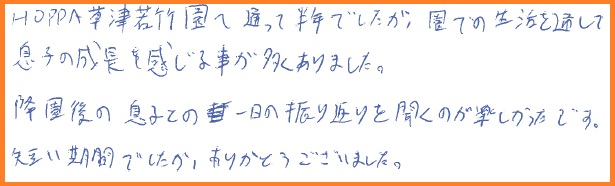 HOPPA草津若竹園へ通って半年でしたが、園での生活を通して
息子の成長を感じる事が多くありました。
降園後の息子との一日の振り返りを聞くのが楽しかったです。
短い期間でしたが、ありがとうございました。